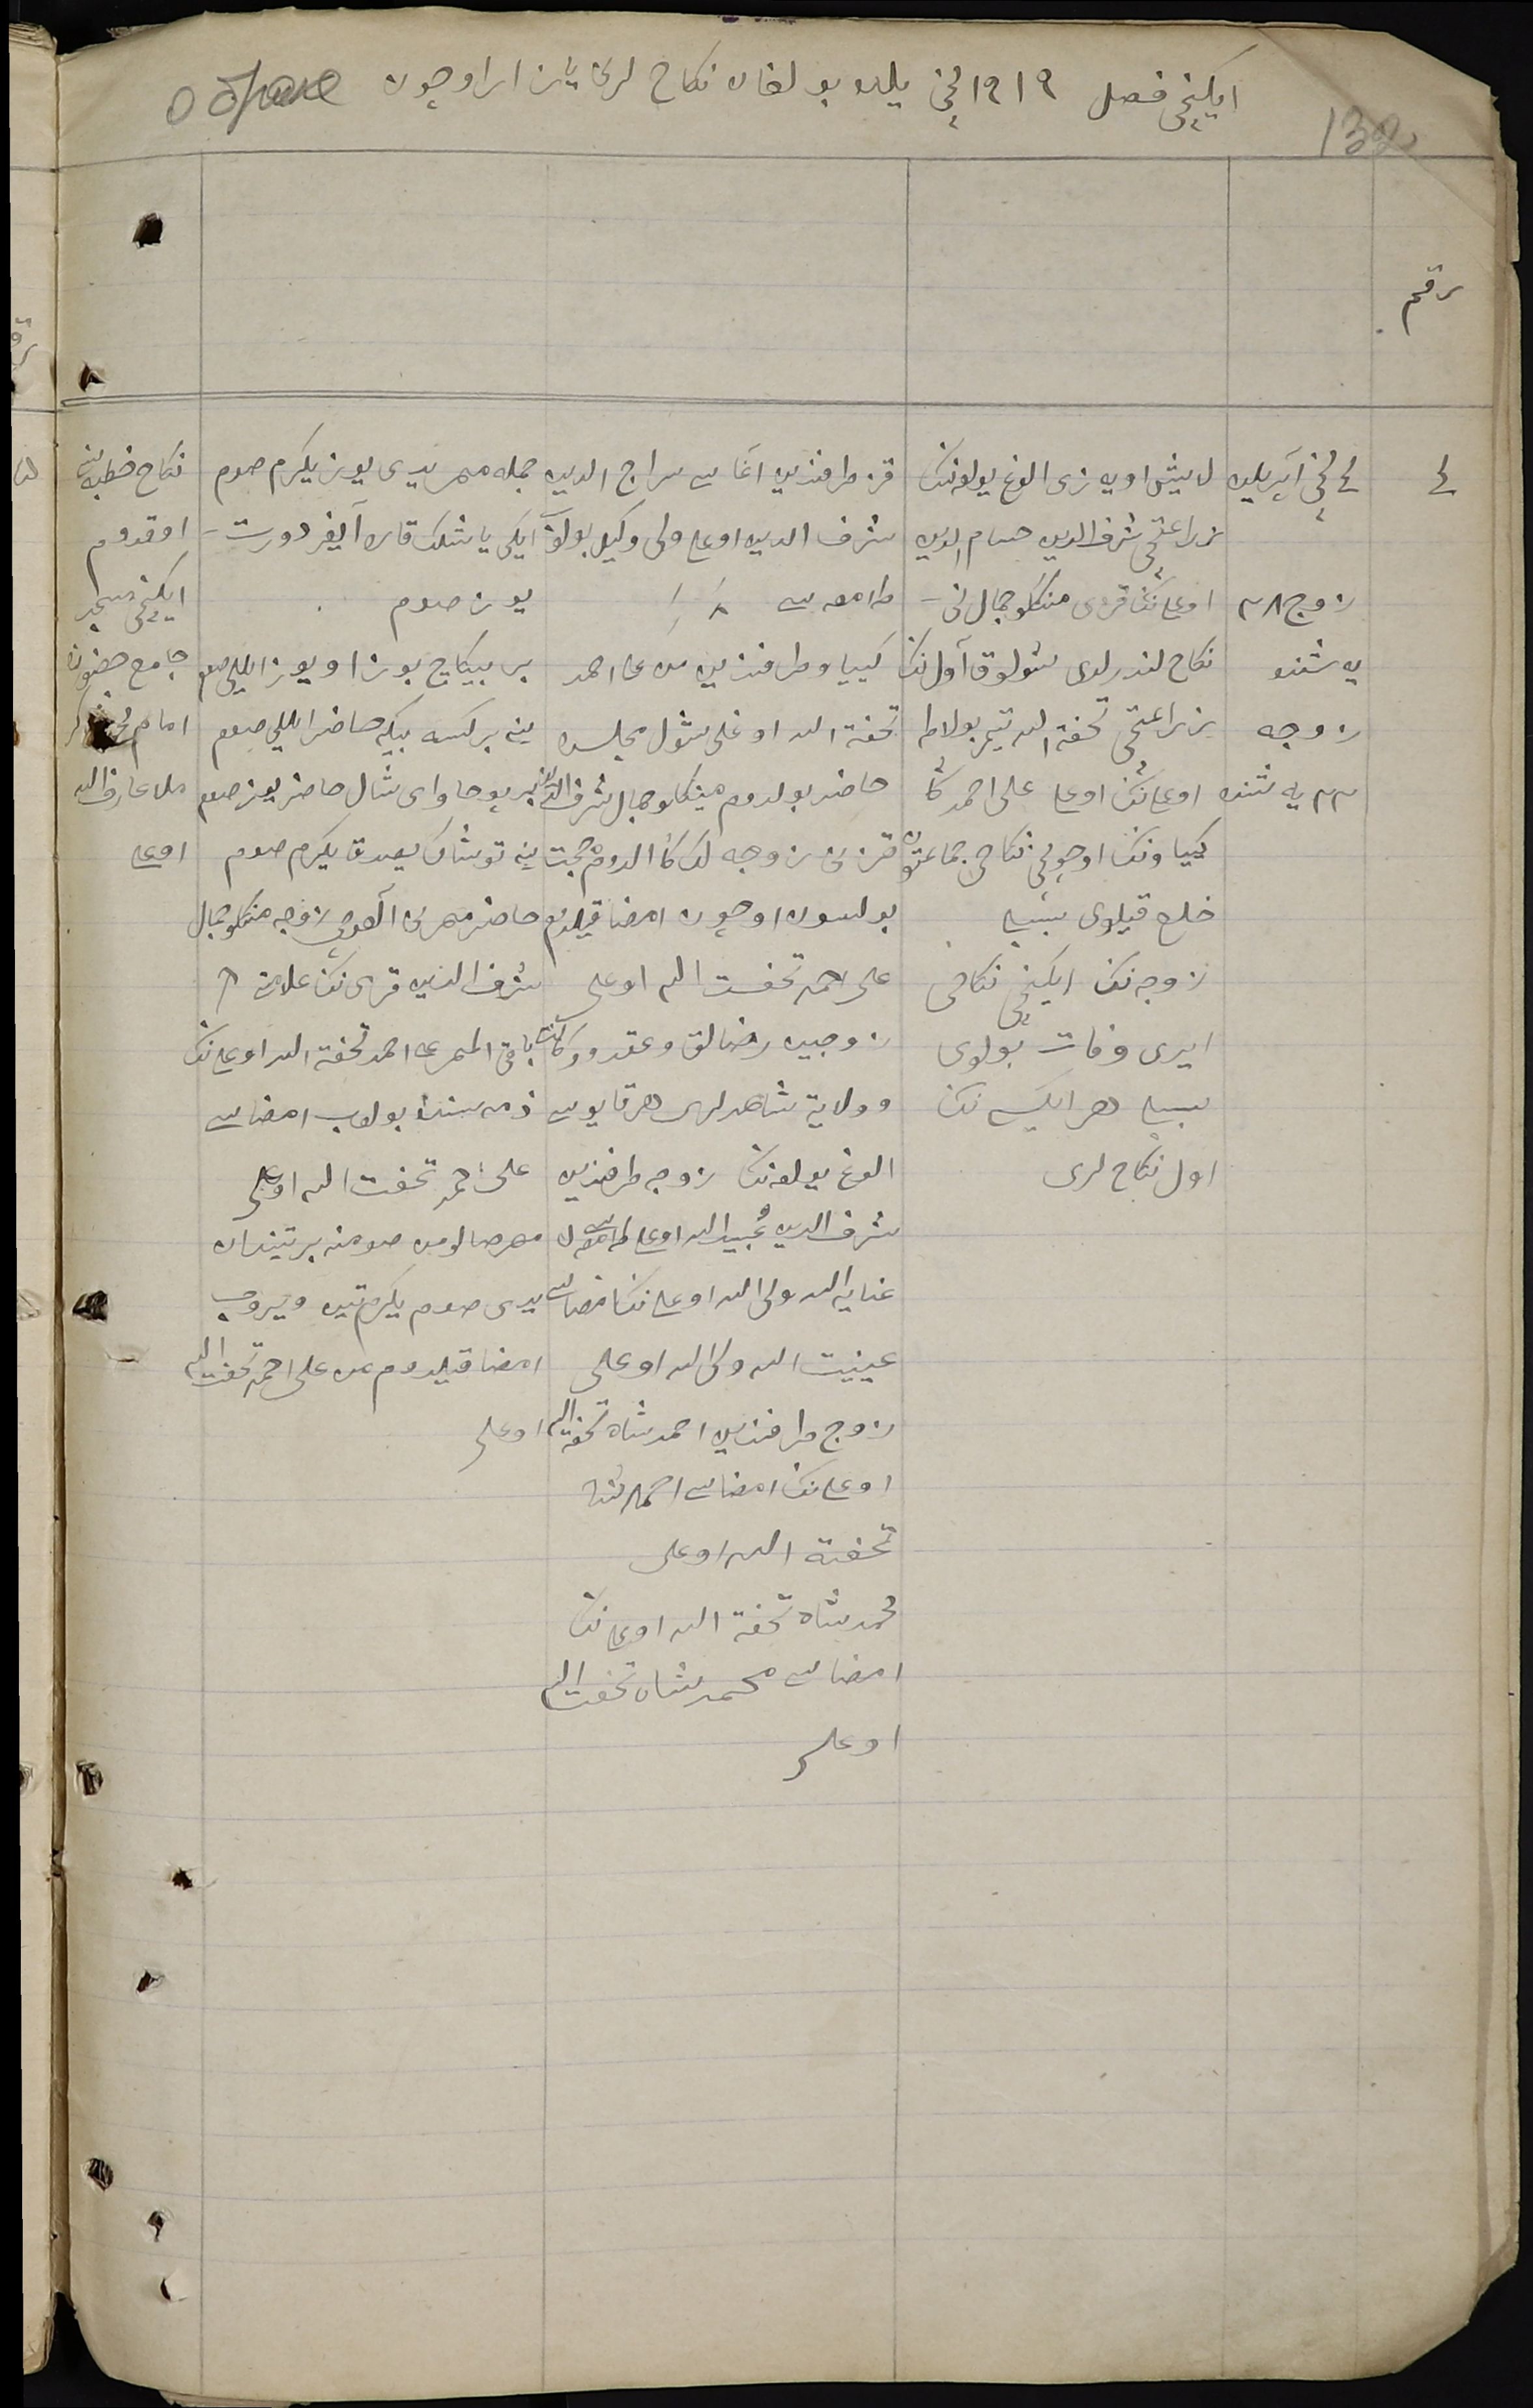 ایکنچی فصل ۱۹۱۹ نچی یلده بولغان نکاح لرنی یازار اوچون
132
رقم
٤
٤ نچی آپریلده
زوج ۲۸
یه شنده
زوجه
۲۲ یه شنده
لایش اویه زی الوغ یولغه ننک
زراعتچی شرف الدین حسام الدین
اوغلی ننک قزی منکلو جمال نی
نکاح لندرلدی شولوق آول ننک
زراعتچی تحفة الله تیمر بولاط
اوغلی ننک اوغلی علی احمد کا
کییاو ننک اوچونچی نکاحی جماعتون
خلع قیلدی سببلی
زوجه ننک ایکنچی نکاحی
ایری وفات بولدی
سببلی هر ایکیسی ننک
اول نکاح لری
قز طرفندین آغاسی سراج الدین
شرف الدین اوغلی ولی وکیل بولوب
طامغه سی
کییاو طرفندین من علی احمد
تحفة الله اوغلی شول مجلسده
حاضر بولدوم مینکلو جمال شرف الدین
قزی نی زوجه لک کا الدوم حجت
بولسون اوچون امضا قیلدم
علی احمد تحفت الله اوغلی
زوجین رضالق و عقد و وکالت
و ولایة شاهدلری هر قایوسی
الوغ یولغه ننک زوجه طرفندین
شرف الدین عبید الله اوغلی طامغه سی
عنایة الله ولی الله اوغلی ننک امضاسی
عینیت الله ولی الله اوغلی
زوج طرفندین احمد شاه تحفة الله
اوغلی ننک امضاسی احمد شاه
تحفة الله اوغلی
محمد شاه تحفة الله اوغلی ننک
امضاسی محمد شاه تحفت الله
اوغلی
جمله مهر یدی یوز یکرم صوم
ایکی یاشلک قاره آیغر دورت
یوز صوم
بر بیکاچ بوزاو یوز اللی صوم
ینه برکسه بیکه حاضر اللی صوم
حاضر یوز صوم
ینه توشاک یصدق یکرم صوم
حاضر مهرنی آلغوچی زوجه منکلو جمال
شرف الدین قزی ننک علامتی
باقی المهر علی احمد تحفة الله اوغلی ننک
ذمه سنده بولوب امضاسی
علی احمد تحفت الله اوغلی
مهر صالومی صومنه بر تیندان
یدی صوم یکرم تین ویروب
امضا قیلدوم من علی احمد تحفت الله
اوغلی
نکاح خطبه سن
اوقدوم
ایکنچی مسجد
جامع حضورنده
امام
ملا عارف الله
اوغلی